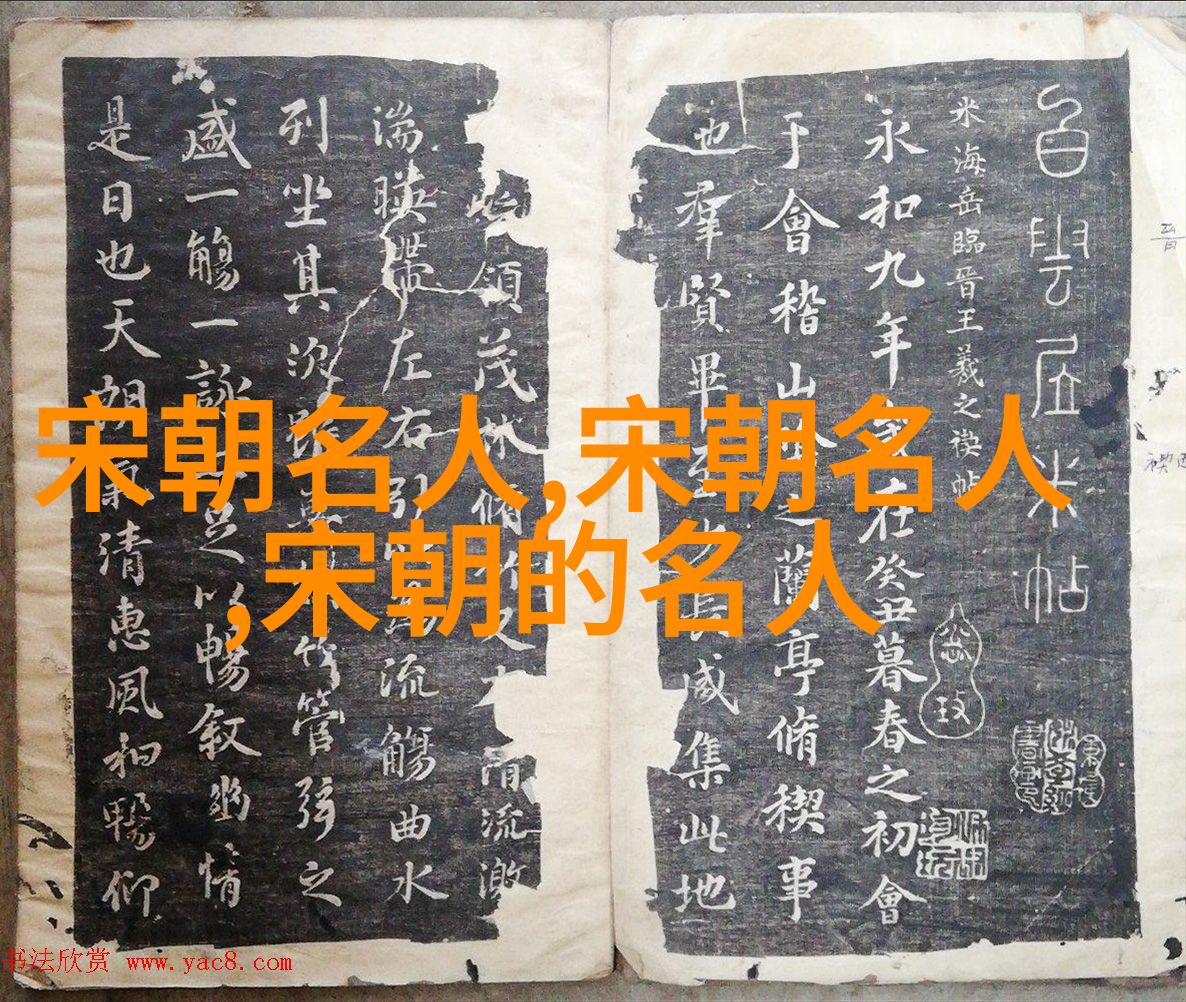 宋朝名人,宋朝名人
,宋朝的名人
白雲居米帖
米海岳臨晉王羲之禊帖
永和九年歲在癸丑暮春之初會
于會稽山陰之蘭亭脩禊事
也羣賢畢至少長咸集此地
領茂林脩竹又有清流激
湍暎帶左右引以為流觴曲水
列坐其次雖無絲竹管弦之
盛一觴一詠亦足以暢叙幽情
是日也天朗氣清惠風和暢仰
书法欣赏 www.yac8.com